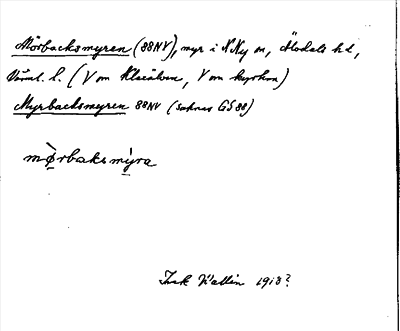 Mörbacksmyren (88NV), myr i N Ny sn, Älvdals hd,
Värml. l. (V om Klarälven, V om kyrkan)
Myrbacksmyren 88NV (saknas GS 88)
mø̀rbaksmýra
Kallin 1918?